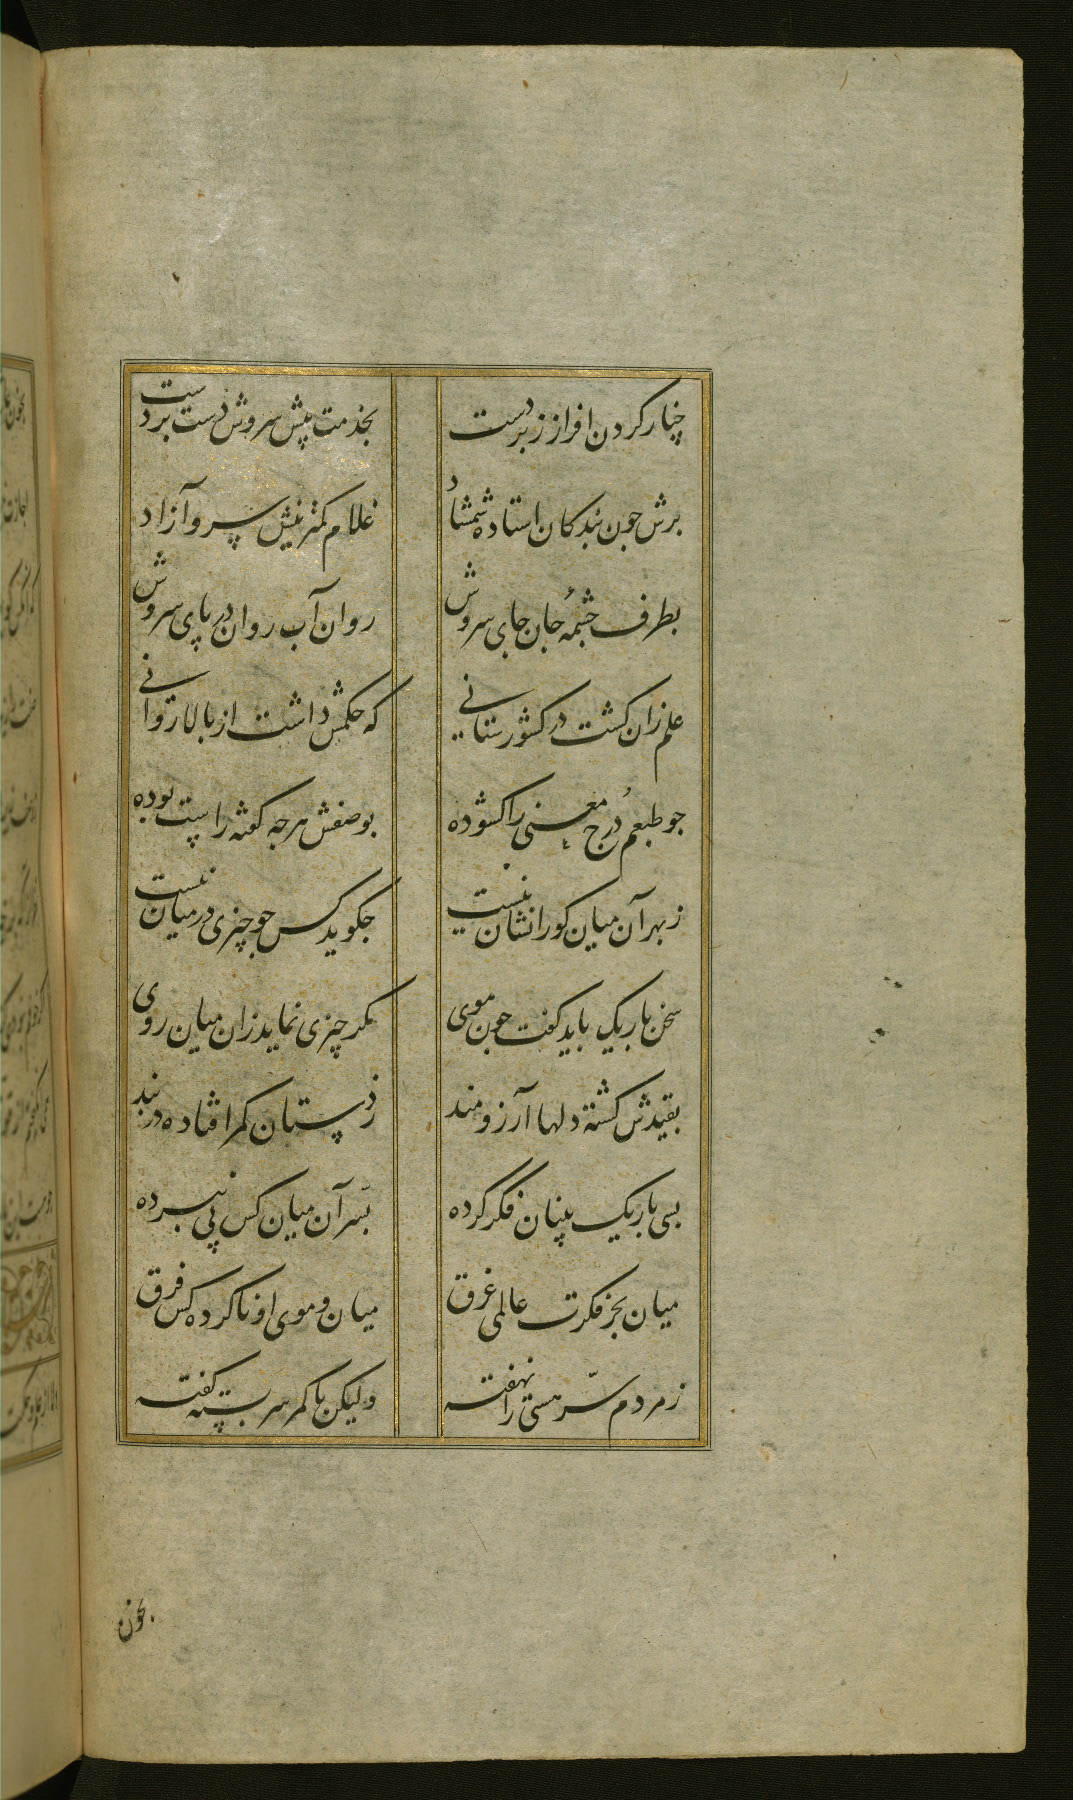 چنار کردن افراز زبردست
بخدمت پیش سروش دست بر دست
برش جون بندکان استاده شمشاد
غلام کمترینش سرو آزاد
بطرف چشمهٔ جان جای سروش
روان آب روان در پای سروش
علم زان کشت در کشورستانی
که حکمش داشت از بالا روانی
جو طبعم درج معنی را کشوده
بوصفش هرجه کفته راست بوده
زبهر آن میان کورا نشان نیست
جکوید کس جو چیزی در میان نیست
سخن باریک باید کفت جون موی
مکر چیزی نماید زان میان روی
بقیدش کشته دلها آرزومند
زدستان کمر افتاده در بند
بسی باریک بینان فکر کرده
بسّر آن میان کس پی نبرده
میان بحر فکرت عالمی غرق
میان و موی او نا کرده کس فرق
زمردم سّر هستی را نهفته
ولیکن با کمر سربسته کفته